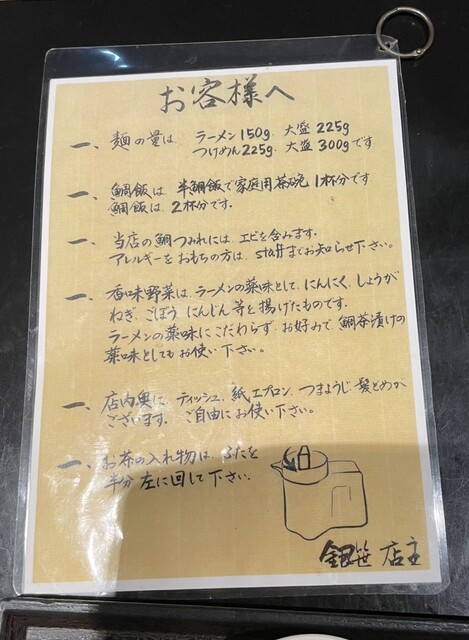 お客様へ
一、麺の量は、ラーメン150g. 大盛 225g
つけめん225g. 大盛 300gです
一、鯛飯は 半鯛飯で家庭用茶碗 1杯分です
鯛飯は 2杯分です.
一、当店の鯛つみれには、エビを含みます.
アレルギーをおもちの方は、staffまでお知らせ下さい.
一、香味野菜は、ラーメンの薬味として、にんにく、しょうが
ねぎ、ごぼう にんじん 等を揚げたものです.
ラーメンの薬味にこだわらず お好みで 鯛茶漬けの
薬味としても お使い 下さい。
一、店内奥に ティッシュ、紙エプロン、つまようじ 髪どめが
ございます. ご自由にお使い下さい。
一、お茶の入れ物は、ふたを
半分 左に回して下さい.
銀笹 店主